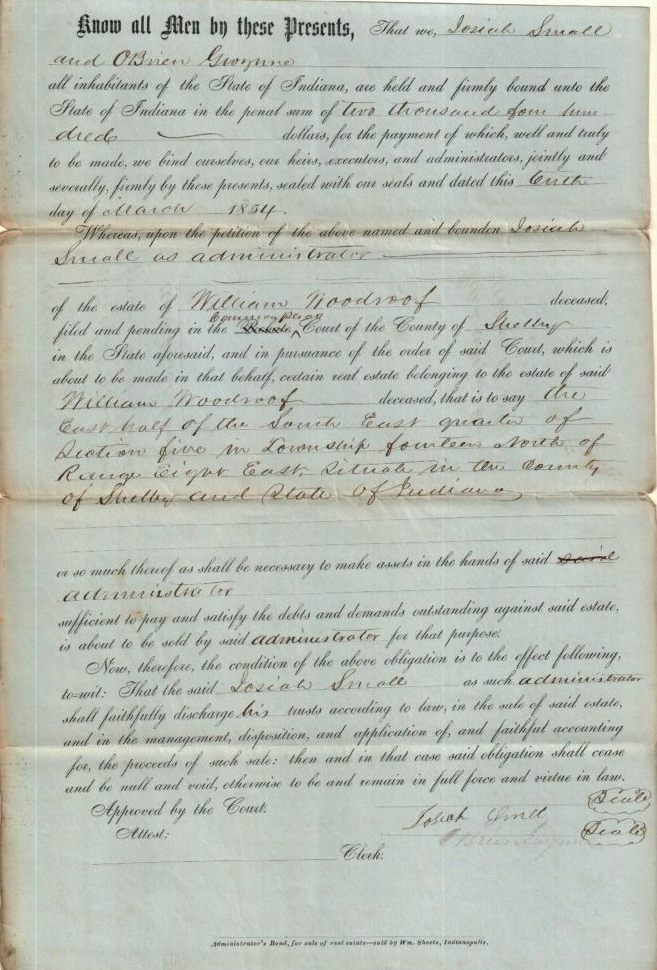 Know all Men by these Presents, That we, Josiah Small
and OBrien Gwynne
all inhabitants of the State of Indiana, are held and firmly bound unto the
State of Indiana in the penal sum of two thousand four hun
dred dollars, for the payment of which, well and truly
to be made, we bind ourselves, our heirs, executors, and administrators, jointly and
severally, firmly by these presents, sealed with our seals and dated this
day of March 1854.
Whereas, upon the petition of the above named and bounden Josiah
Small as administrator
of the estate of William Woodroof deceased,
Common Pleas
filed and pending in the Probate, Court of the County of Shelby
in the State aforesaid, and in pursuance of the order of said Court, which is
about to be made in that behalf, certain real estate belonging to the estate of said
William Woodroof deceased, that is to say the
East half of the South East quarter of
Section five in Township fourteen North of
Range Eight East, Situate in the County
of Shelby and State of Indiana
or so much thereof as shall be necessary to make assets in the hands of said said
administrator
sufficient to pay and satisfy the debts and demands outstanding against said estate,
is about to be sold by said administrator for that purpose.
Now, therefore, the condition of the above obligation is to the effect following,
to-wit: That the said Josiah Small as such administrator
shall faithfully discharge his trusts according to law, in the sale of said estate,
and in the management, disposition, and application of, and faithful accounting
for, the proceeds of such sale: then and in that case said obligation shall cease
and be null and void, otherwise to be and remain in full force and virtue in law.
Approved by the Court.
Josiah Small Seal
Attest:
OBrien Gwynne Seal
Clerk.
Administrator's Bond, for sale of real estate—sold by Wm. Sheets, Indianapolis.